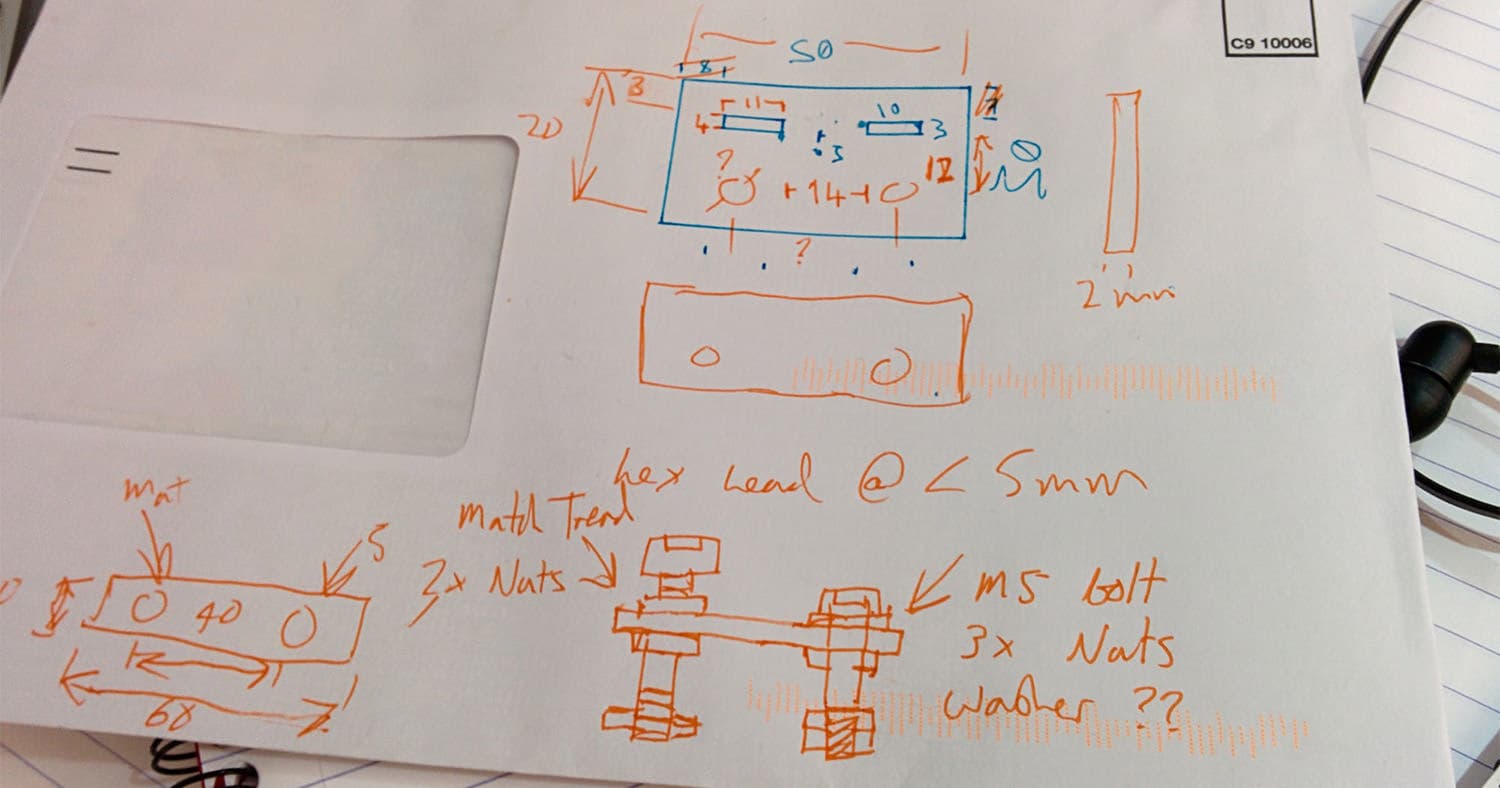 C9 10006
50
8
3
20
11
10
4
3
5
?
+14+
12
?
2mm
hex head @ < 5mm
mat
Match Trend
3x Nuts
5
40
68
M5 bolt
3x Nuts
washer ??